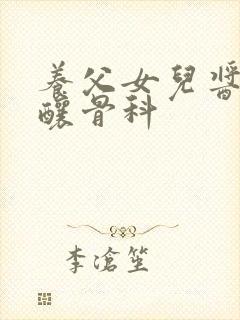 養父女兒醬
釀骨科
李滄笙